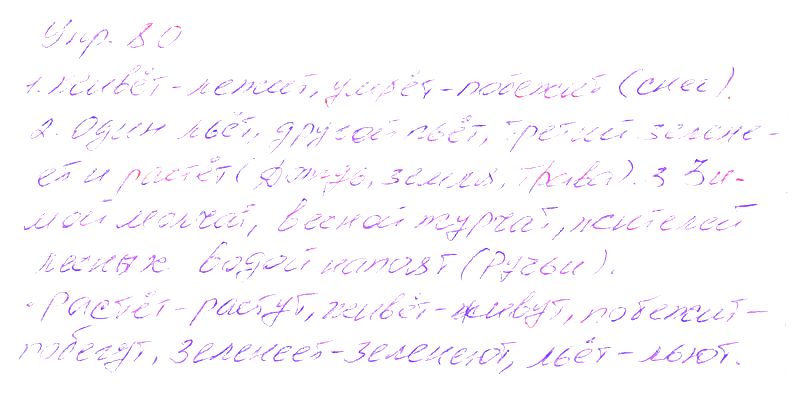 Упр. 80
1. Живёт - лежит, умрёт - побежит (снег).
2. Один льёт, другой пьёт, третий зелене-
ет и растёт (Дождь, земля, трава). 3 Зи-
мой молчат, весной журчат, жителей
лесных водой напоят (Ручьи).
• Растёт - растут, живёт - живут, побежит -
побегут, зеленеет - зеленеют, льёт - льют.